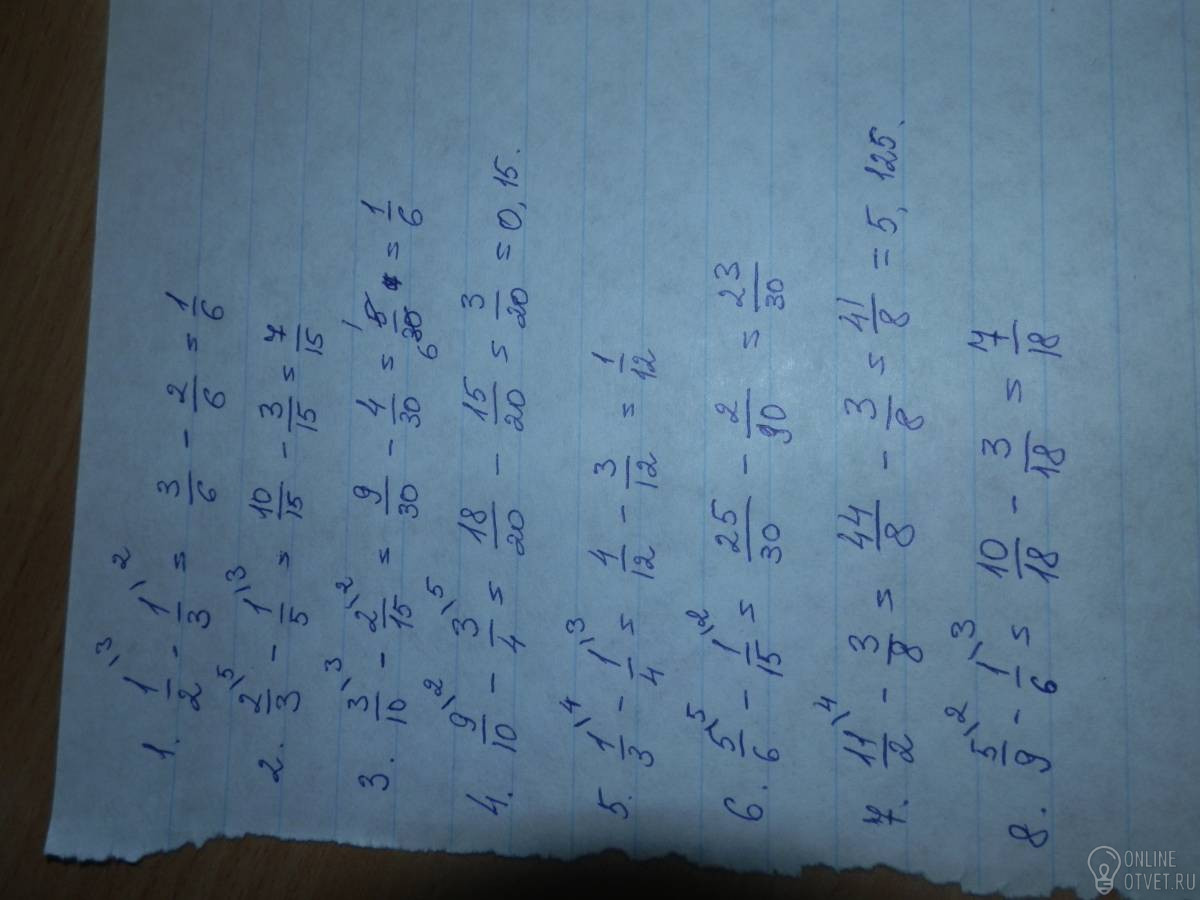 1. 1/2 \3 - 1/3 \2 = 3/6 - 2/6 = 1/6
2. 2/3 \5 - 1/5 \3 = 10/15 - 3/15 = 7/15
3. 3/10 \3 - 2/15 \2 = 9/30 - 4/30 = 5 1/30 6 = 1/6
4. 9/10 \2 - 3/4 \5 = 18/20 - 15/20 = 3/20 = 0,15.
5. 1/3 \4 - 1/4 \3 = 4/12 - 3/12 = 1/12
6. 5/6 \5 - 1/15 \2 = 25/30 - 2/90 = 23/30
7. 11/2 \4 - 3/8 = 44/8 - 3/8 = 41/8 = 5,125.
8. 5/9 \2 - 1/6 \3 = 10/18 - 3/18 = 7/18
ONLINE
OTVET.RU